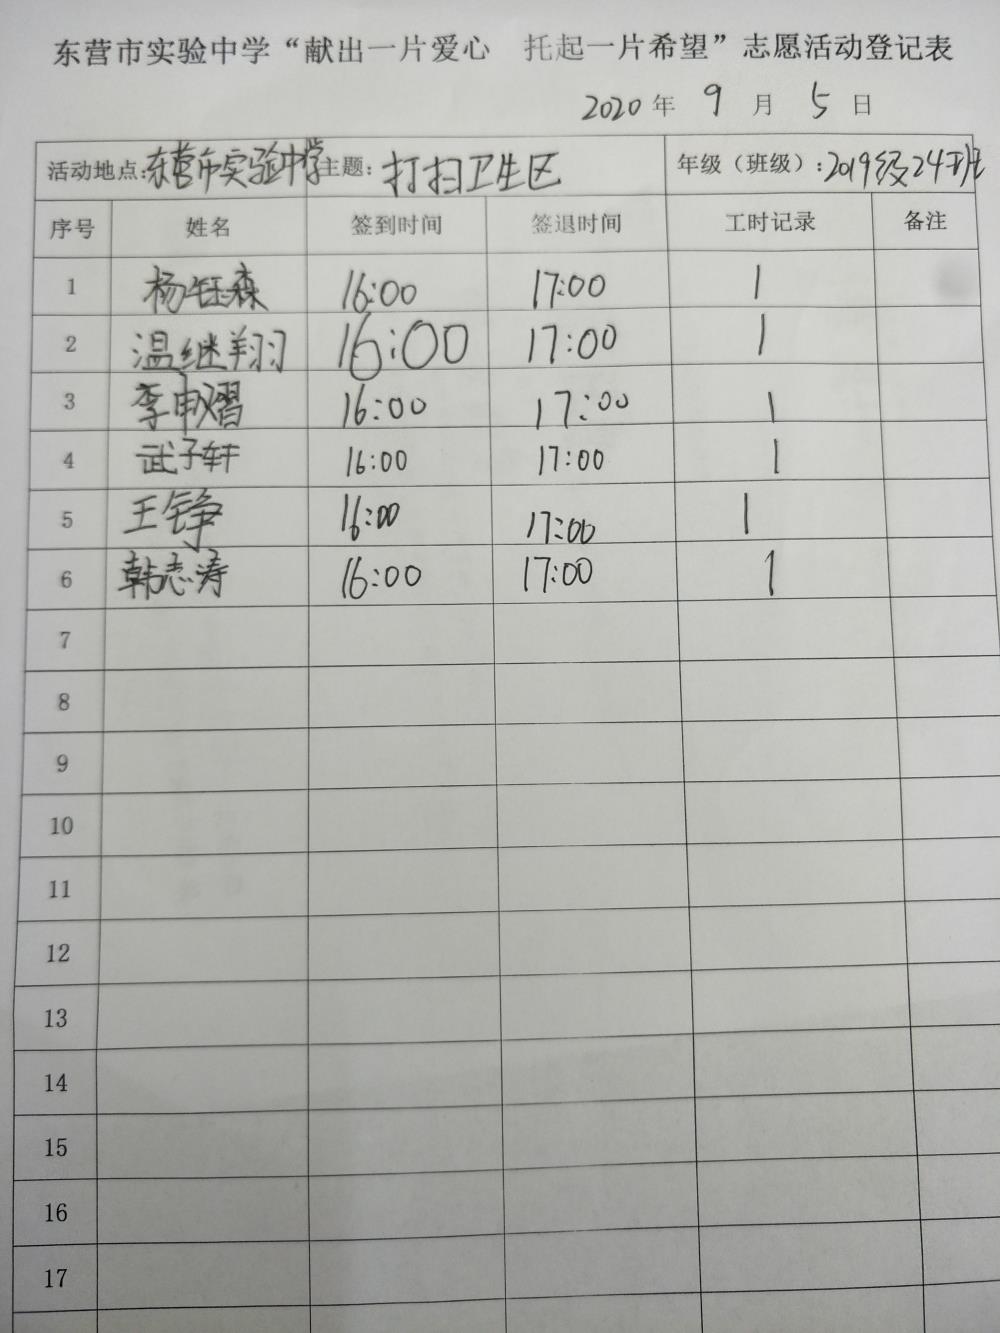 东营市实验中学“献出一片爱心 托起一片希望”志愿活动登记表
2020 年 9 月 5 日
活动地点:东营市实验中学 主题: 打扫卫生区 年级（班级）: 2019级24班
序号 姓名 签到时间 签退时间 工时记录 备注
1 杨钰森 16:00 17:00 1
2 温继翔 16:00 17:00 1
3 李申熠 16:00 17:00 1
4 武子轩 16:00 17:00 1
5 王铮 16:00 17:00 1
6 韩志涛 16:00 17:00 1
7
8
9
10
11
12
13
14
15
16
17